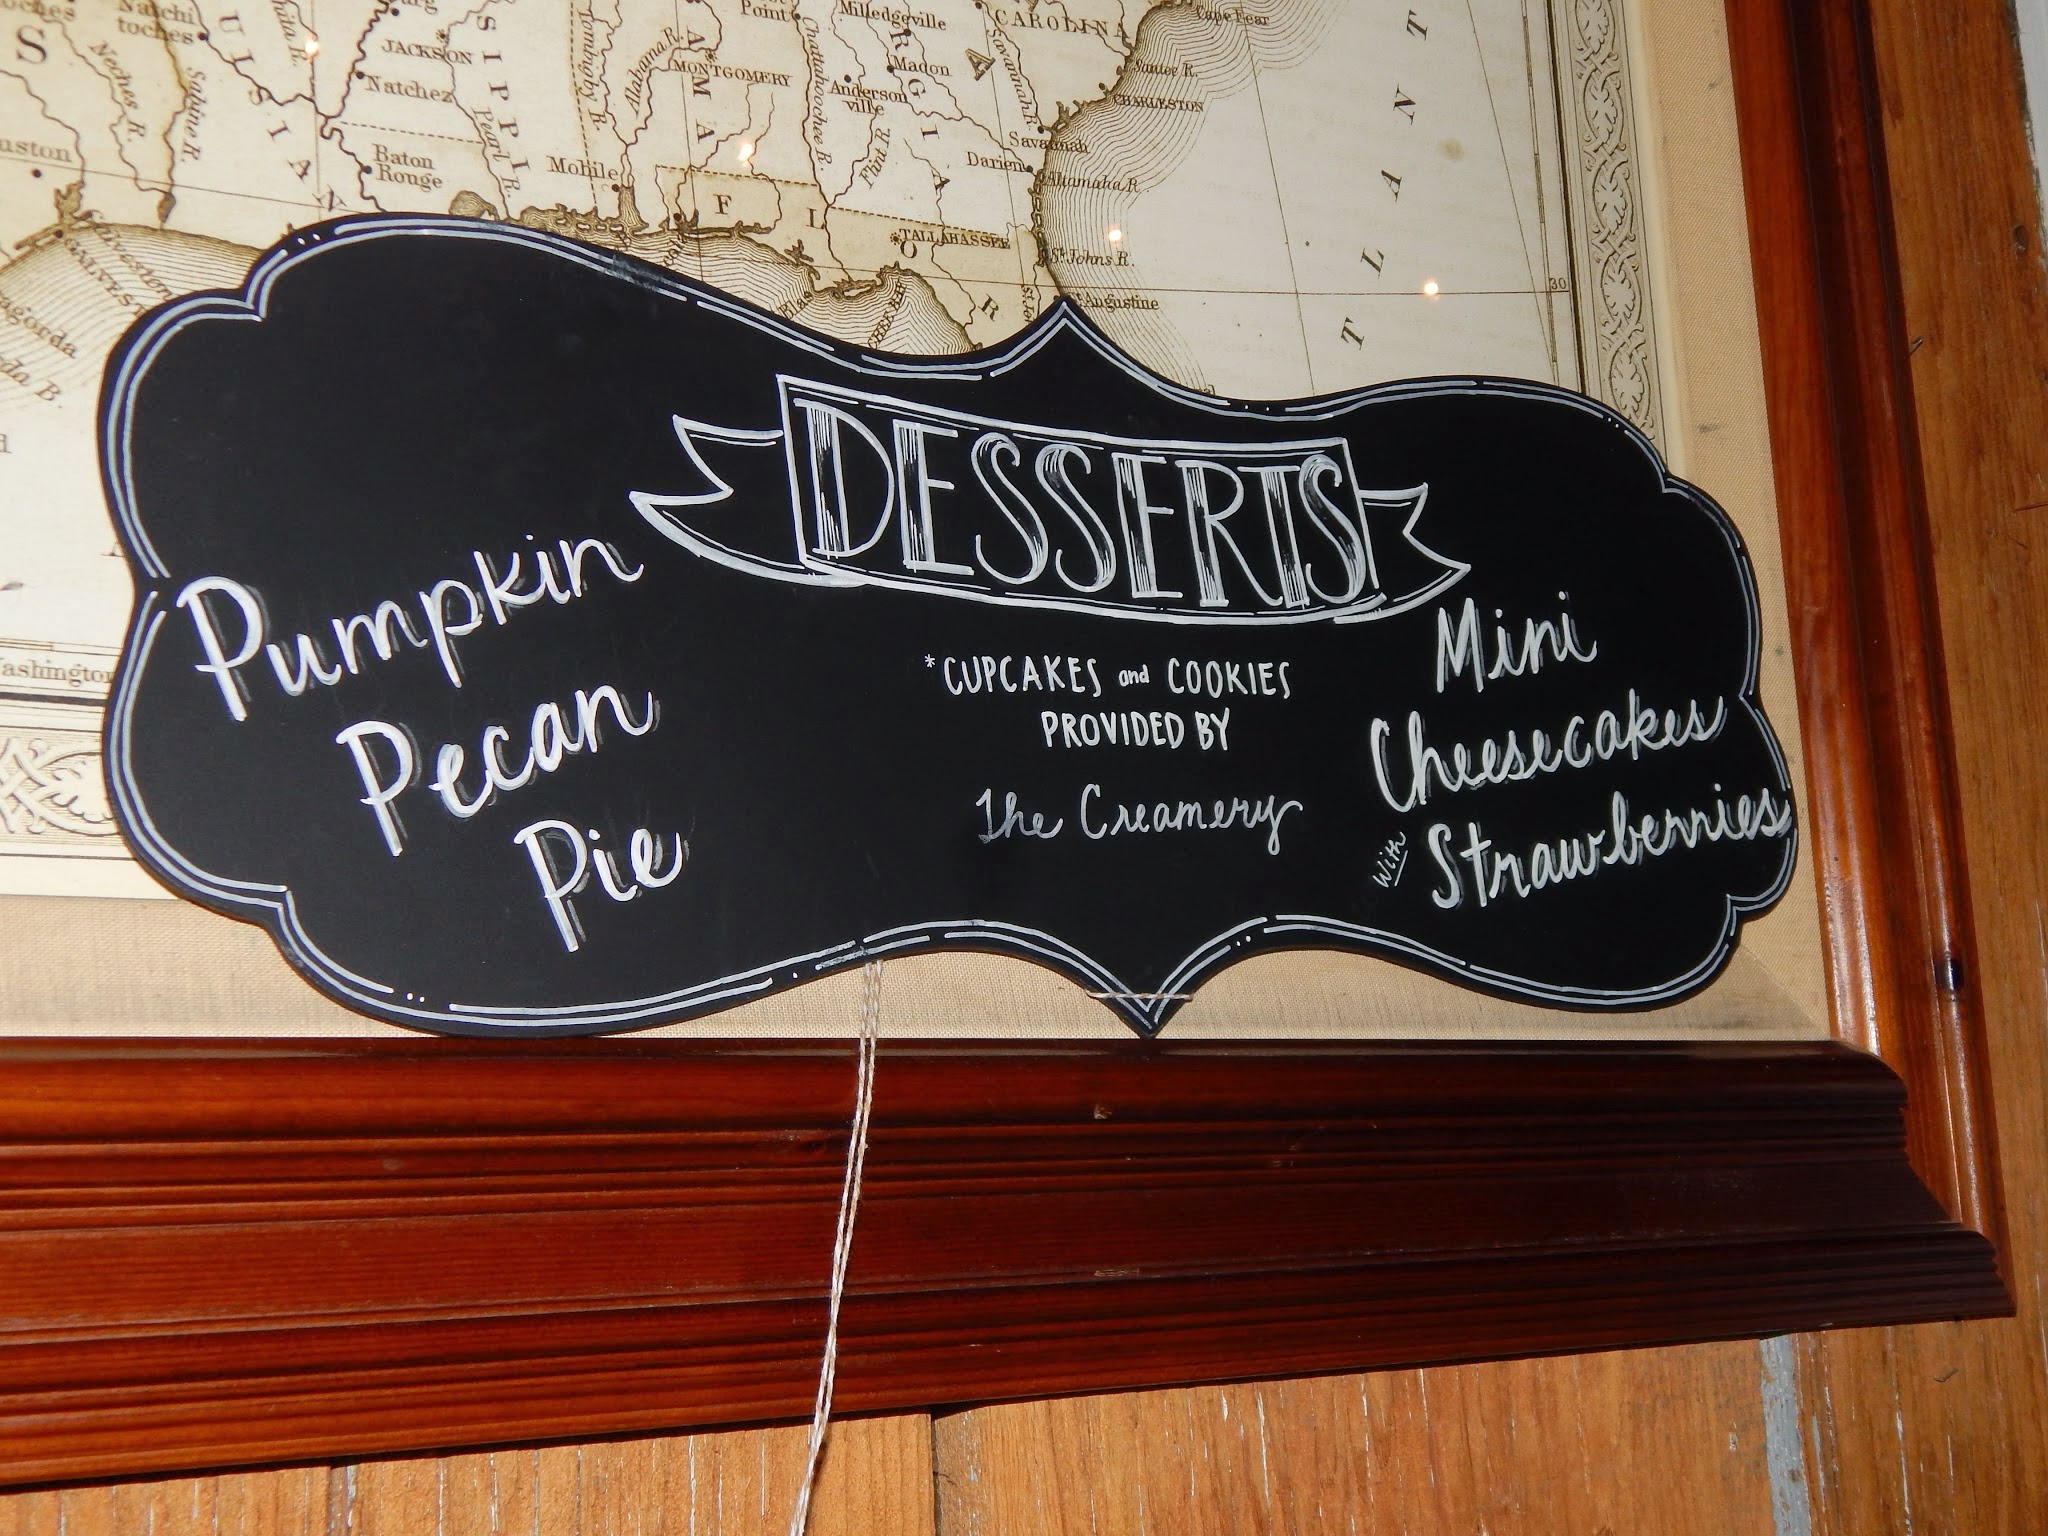 DESSERTS
Pumpkin
Pecan
Pie
*CUPCAKES and COOKIES
PROVIDED BY
The Creamery
Mini
Cheesecakes
with Strawberries
Nachi
toches
Neches R.
Sabine R.
JACKSON
Natchez
Pearl R.
Baton
Rouge
Mobile
Tombigby R.
Alabama R.
MONTGOMERY
Point
Chattahoochee R.
Milledgeville
Macon
Anderson
ville
Flint R.
CAROLINA
Savannah R.
Cape Fear
Santee R.
CHARLESTON
Savannah
Darien
Altamaha R.
TALLAHASSEE
St Johns R.
St Augustine
30